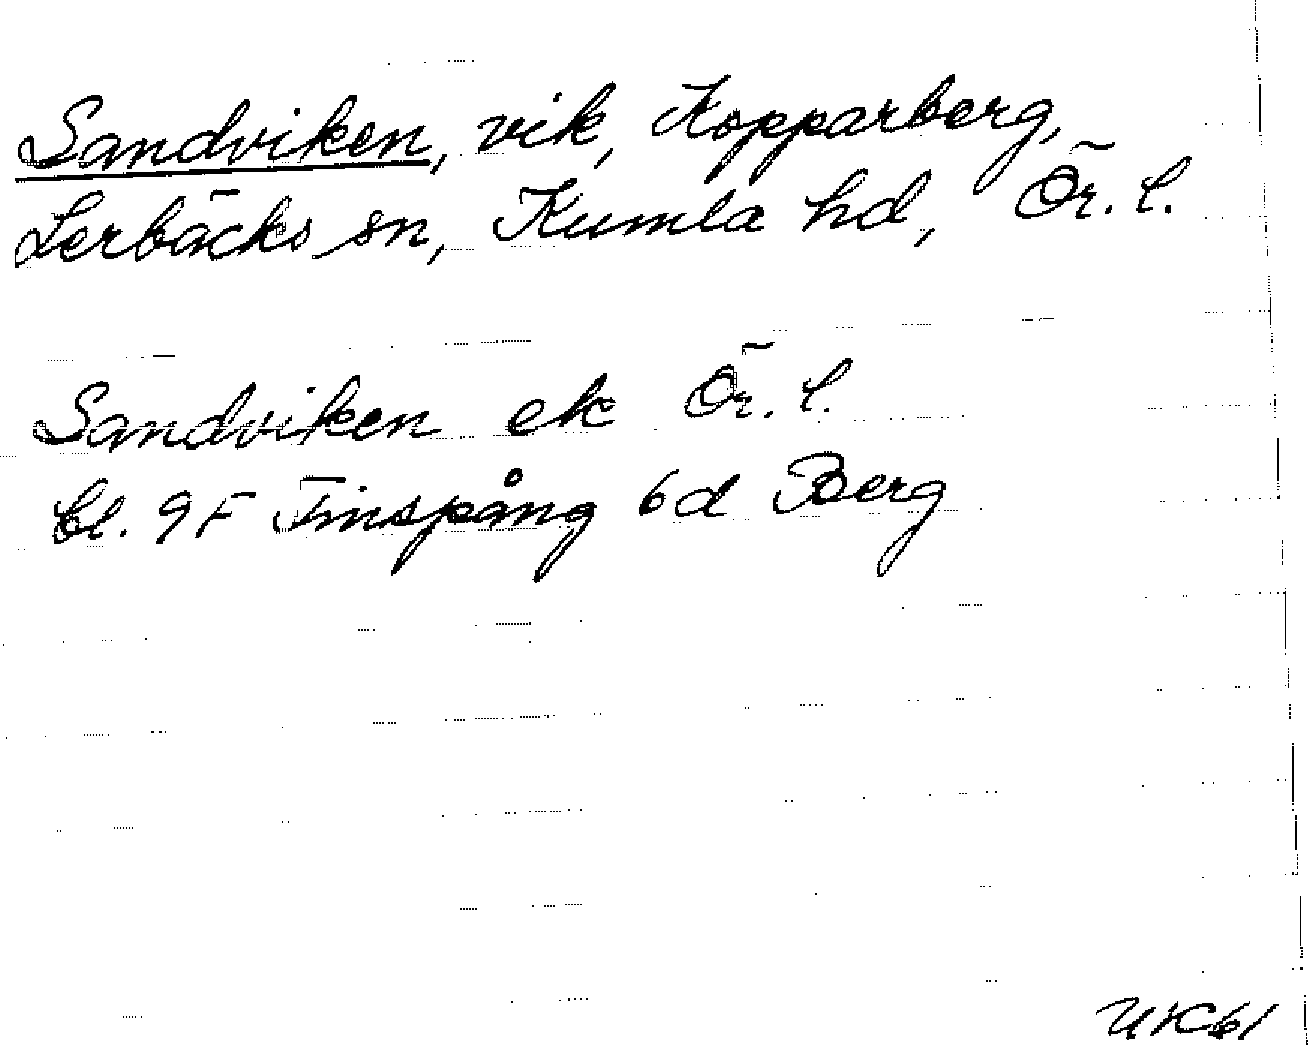 Sandviken, vik, Kopparberg,
Lerbäcks sn, Kumla hd, Ör. l.
Sandviken ek Ör. l.
bl. 9F Finspång 6d Berg
UK61